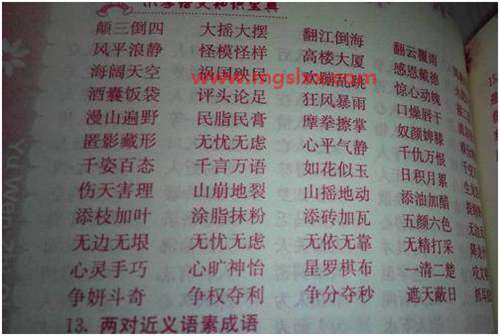 小学语文知识宝典
颠三倒四 大摇大摆 翻江倒海 翻云覆雨
风平浪静 怪模怪样 高楼大厦 感恩戴德
海阔天空 祸国殃民 乱跳 惊心动魄
酒囊饭袋 评头论足 狂风暴雨 口燥唇干
漫山遍野 民脂民膏 摩拳擦掌 奴颜婢膝
匿影藏形 无忧无虑 心平气静 千仇万恨
千姿百态 千言万语 如花似玉 日积月累
伤天害理 山崩地裂 山摇地动 添油加醋
添枝加叶 涂脂抹粉 添砖加瓦 五颜六色
无边无垠 无忧无虑 无依无靠 无精打采
心灵手巧 心旷神怡 星罗棋布 一清二楚
争妍斗奇 争权夺利 争分夺秒 遮天蔽日
13. 两对近义语素成语